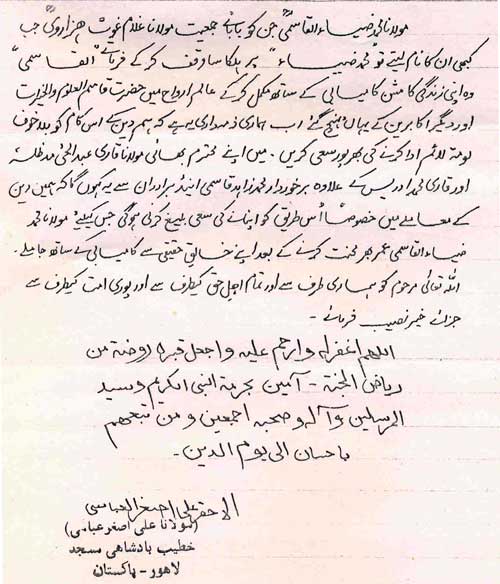 مولانا محمد ضیاء القاسمیؒ جن کو بابائے جمعیت مولانا غلام غوث ہزارویؒ جب
کبھی ان کا نام لیتے تو "محمد ضیاء" پر ہلکا سا وقف کر کے فرماتے "القاسمی"
وہ اپنی زندگی کا مشن کامیابی کے ساتھ مکمل کر کے عالم ارواح میں حضرت قاسم العلوم والخیرات
اور دیگر اکابرین کے یہاں پہنچ گئے اب ہماری ذمہ داری یہ ہے کہ ہم دین کے اس کام کو بلا خوف
لومۃ لائم ادا کرنے کی بھرپور سعی کریں۔ میں اپنے محترم بھائی مولانا قاری عبدالحئی مدظلہ
اور قاری محمد ادریس کے علاوہ برخوردار محمد زاہد قاسمی اینڈ برادران سے یہ کہوں گا کہ ہمیں دین
کے معاملے میں خصوصاً اُس طریق کو اپنانے کی سعی بلیغ کرنی ہوگی جس کیلئے مولانا محمد
ضیاء القاسمی عمر بھر محنت کرنے کے بعد اپنے خالق حقیقی سے کامیابی کے ساتھ جا ملے۔
اللہ تعالیٰ مرحوم کو ہماری طرف سے اور تمام اہل حق کیطرف سے اور پوری امت کیطرف سے
جزائے خیر نصیب فرمائے۔
اللهم اغفر له وارحم عليه واجعل قبره روضة من
رياض الجنة۔ آمين بحرمة النبى الكريم وسيد
المرسلين وآله وصحبه اجمعين ومن تبعهم
باحسان الى يوم الدين۔
الاحقر علی اصغر العباسی
(مولانا علی اصغر عباسی)
خطیب بادشاہی مسجد
لاہور۔ پاکستان